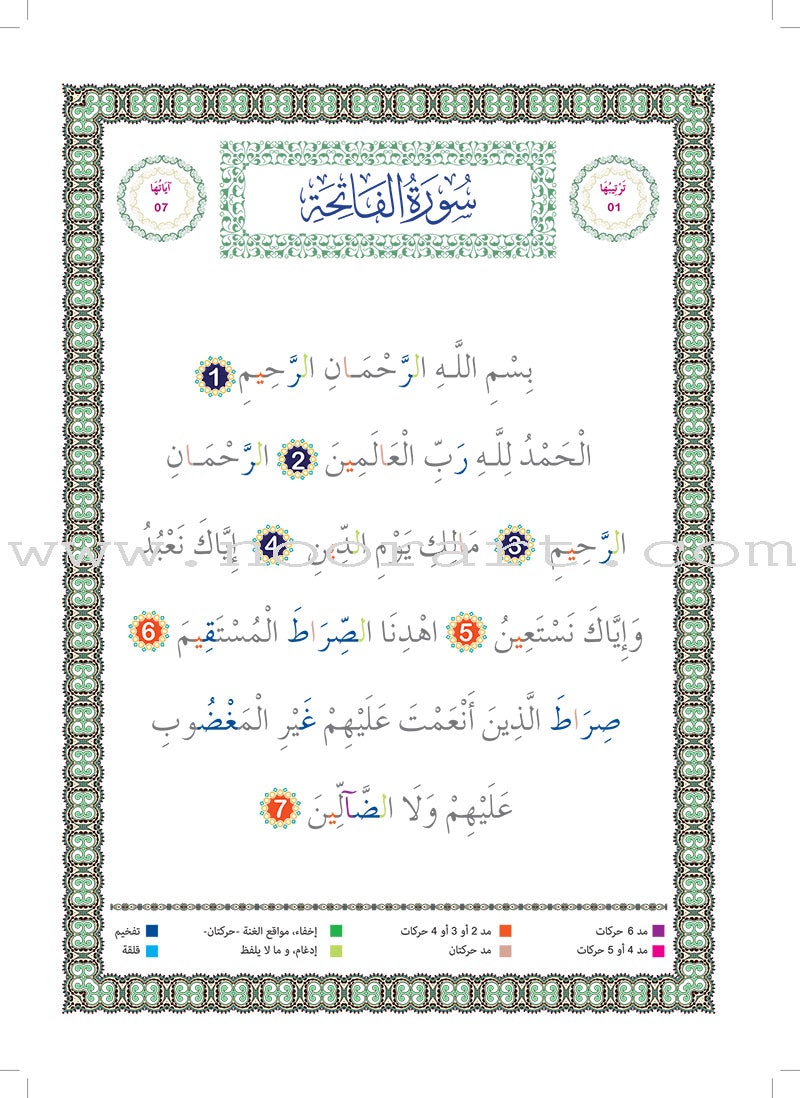 تَرْتِيبُهَا
01
سُورَةُ الفَاتِحَةِ
آيَاتُهَا
07
بِسْمِ اللَّـهِ الرَّحْمَـانِ الرَّحِيمِ 1
الْحَمْدُ لِلَّـهِ رَبِّ الْعَالَمِينَ 2 الرَّحْمَـانِ
الرَّحِيمِ 3 مَالِكِ يَوْمِ الدِّينِ 4 إِيَّاكَ نَعْبُدُ
www.noorart.com
وَإِيَّاكَ نَسْتَعِينُ 5 اهْدِنَا الصِّرَاطَ الْمُسْتَقِيمَ 6
صِرَاطَ الَّذِينَ أَنْعَمْتَ عَلَيْهِمْ غَيْرِ الْمَغْضُوبِ
عَلَيْهِمْ وَلَا الضَّآلِّينَ 7
مد 6 حركات
مد 2 أو 3 أو 4 حركات
إخفاء، مواقع الغنة -حركتان-
تفخيم
مد 4 أو 5 حركات
مد حركتان
إدغام، و ما لا يلفظ
قلقة